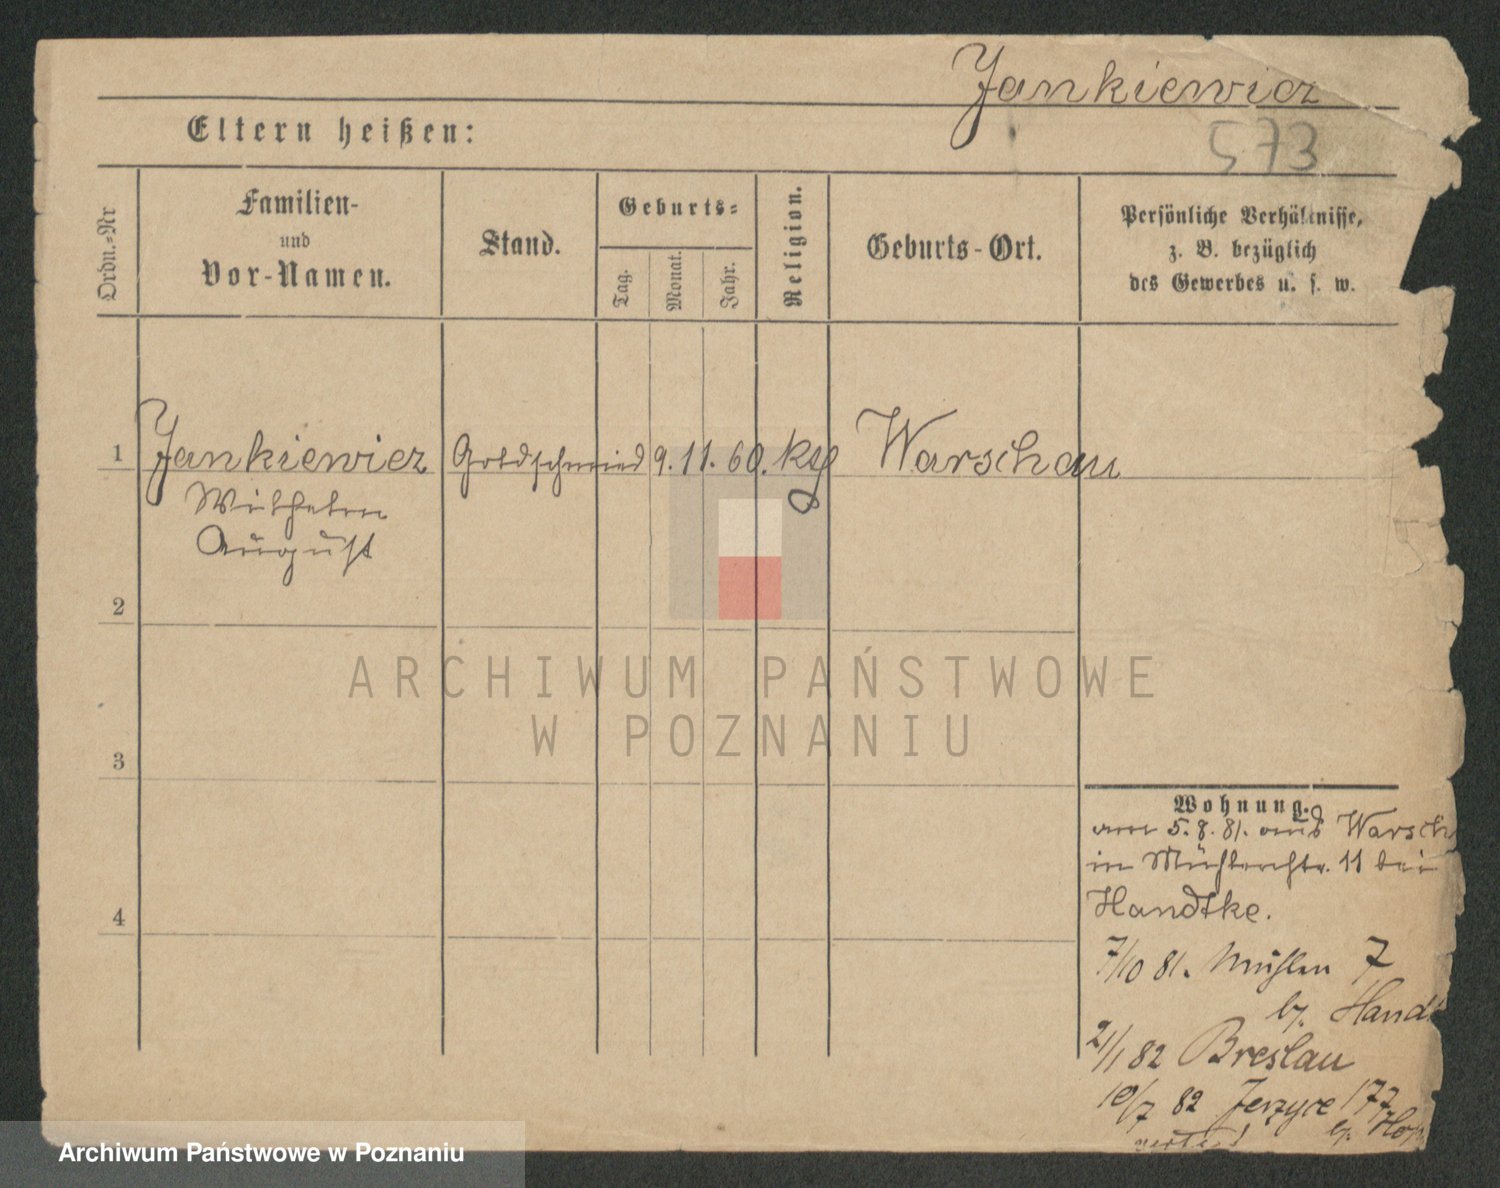 Jankiewicz
Eltern heißen:
573
Ordn.-Nr
Familien-
und
Vor-Namen.
Stand.
Geburts-
Tag.
Monat.
Jahr.
Religion.
Geburts-Ort.
Persönliche Verhältnisse,
z. B. bezüglich
des Gewerbes u. s. w.
1 Jankiewicz Goldschmied 9. 11. 60. Warschau
Wilhelm
August
2
3
4
Wohnung.
am 5. 8. 81. aus Warsch
in Mühlenstr. 11 bei
Handtke.
7/10 81. Mühlen 7
b/. Handt
21/1 82 Breslau
10/7 82 Jerzyce 177
b/.
ARCHIWUM PAŃSTWOWE
W POZNANIU
Archiwum Państwowe w Poznaniu